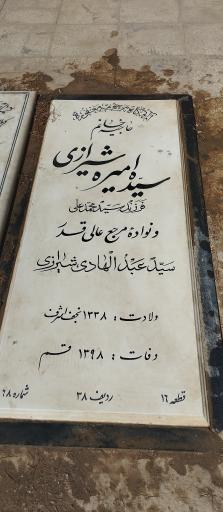 حاجیه خانم
سیّده امیره شیرازی
فرزند سیّد محمد علی
و نوادهٔ مرجع عالی قدر
سیّد عبدالهادی شیرازی
ولادت: ۱۳۳۸ نجف اشرف
وفات: ۱۳۹۸ قم
قطعه ۱۶ ردیف ۳۸ شماره ۶۸